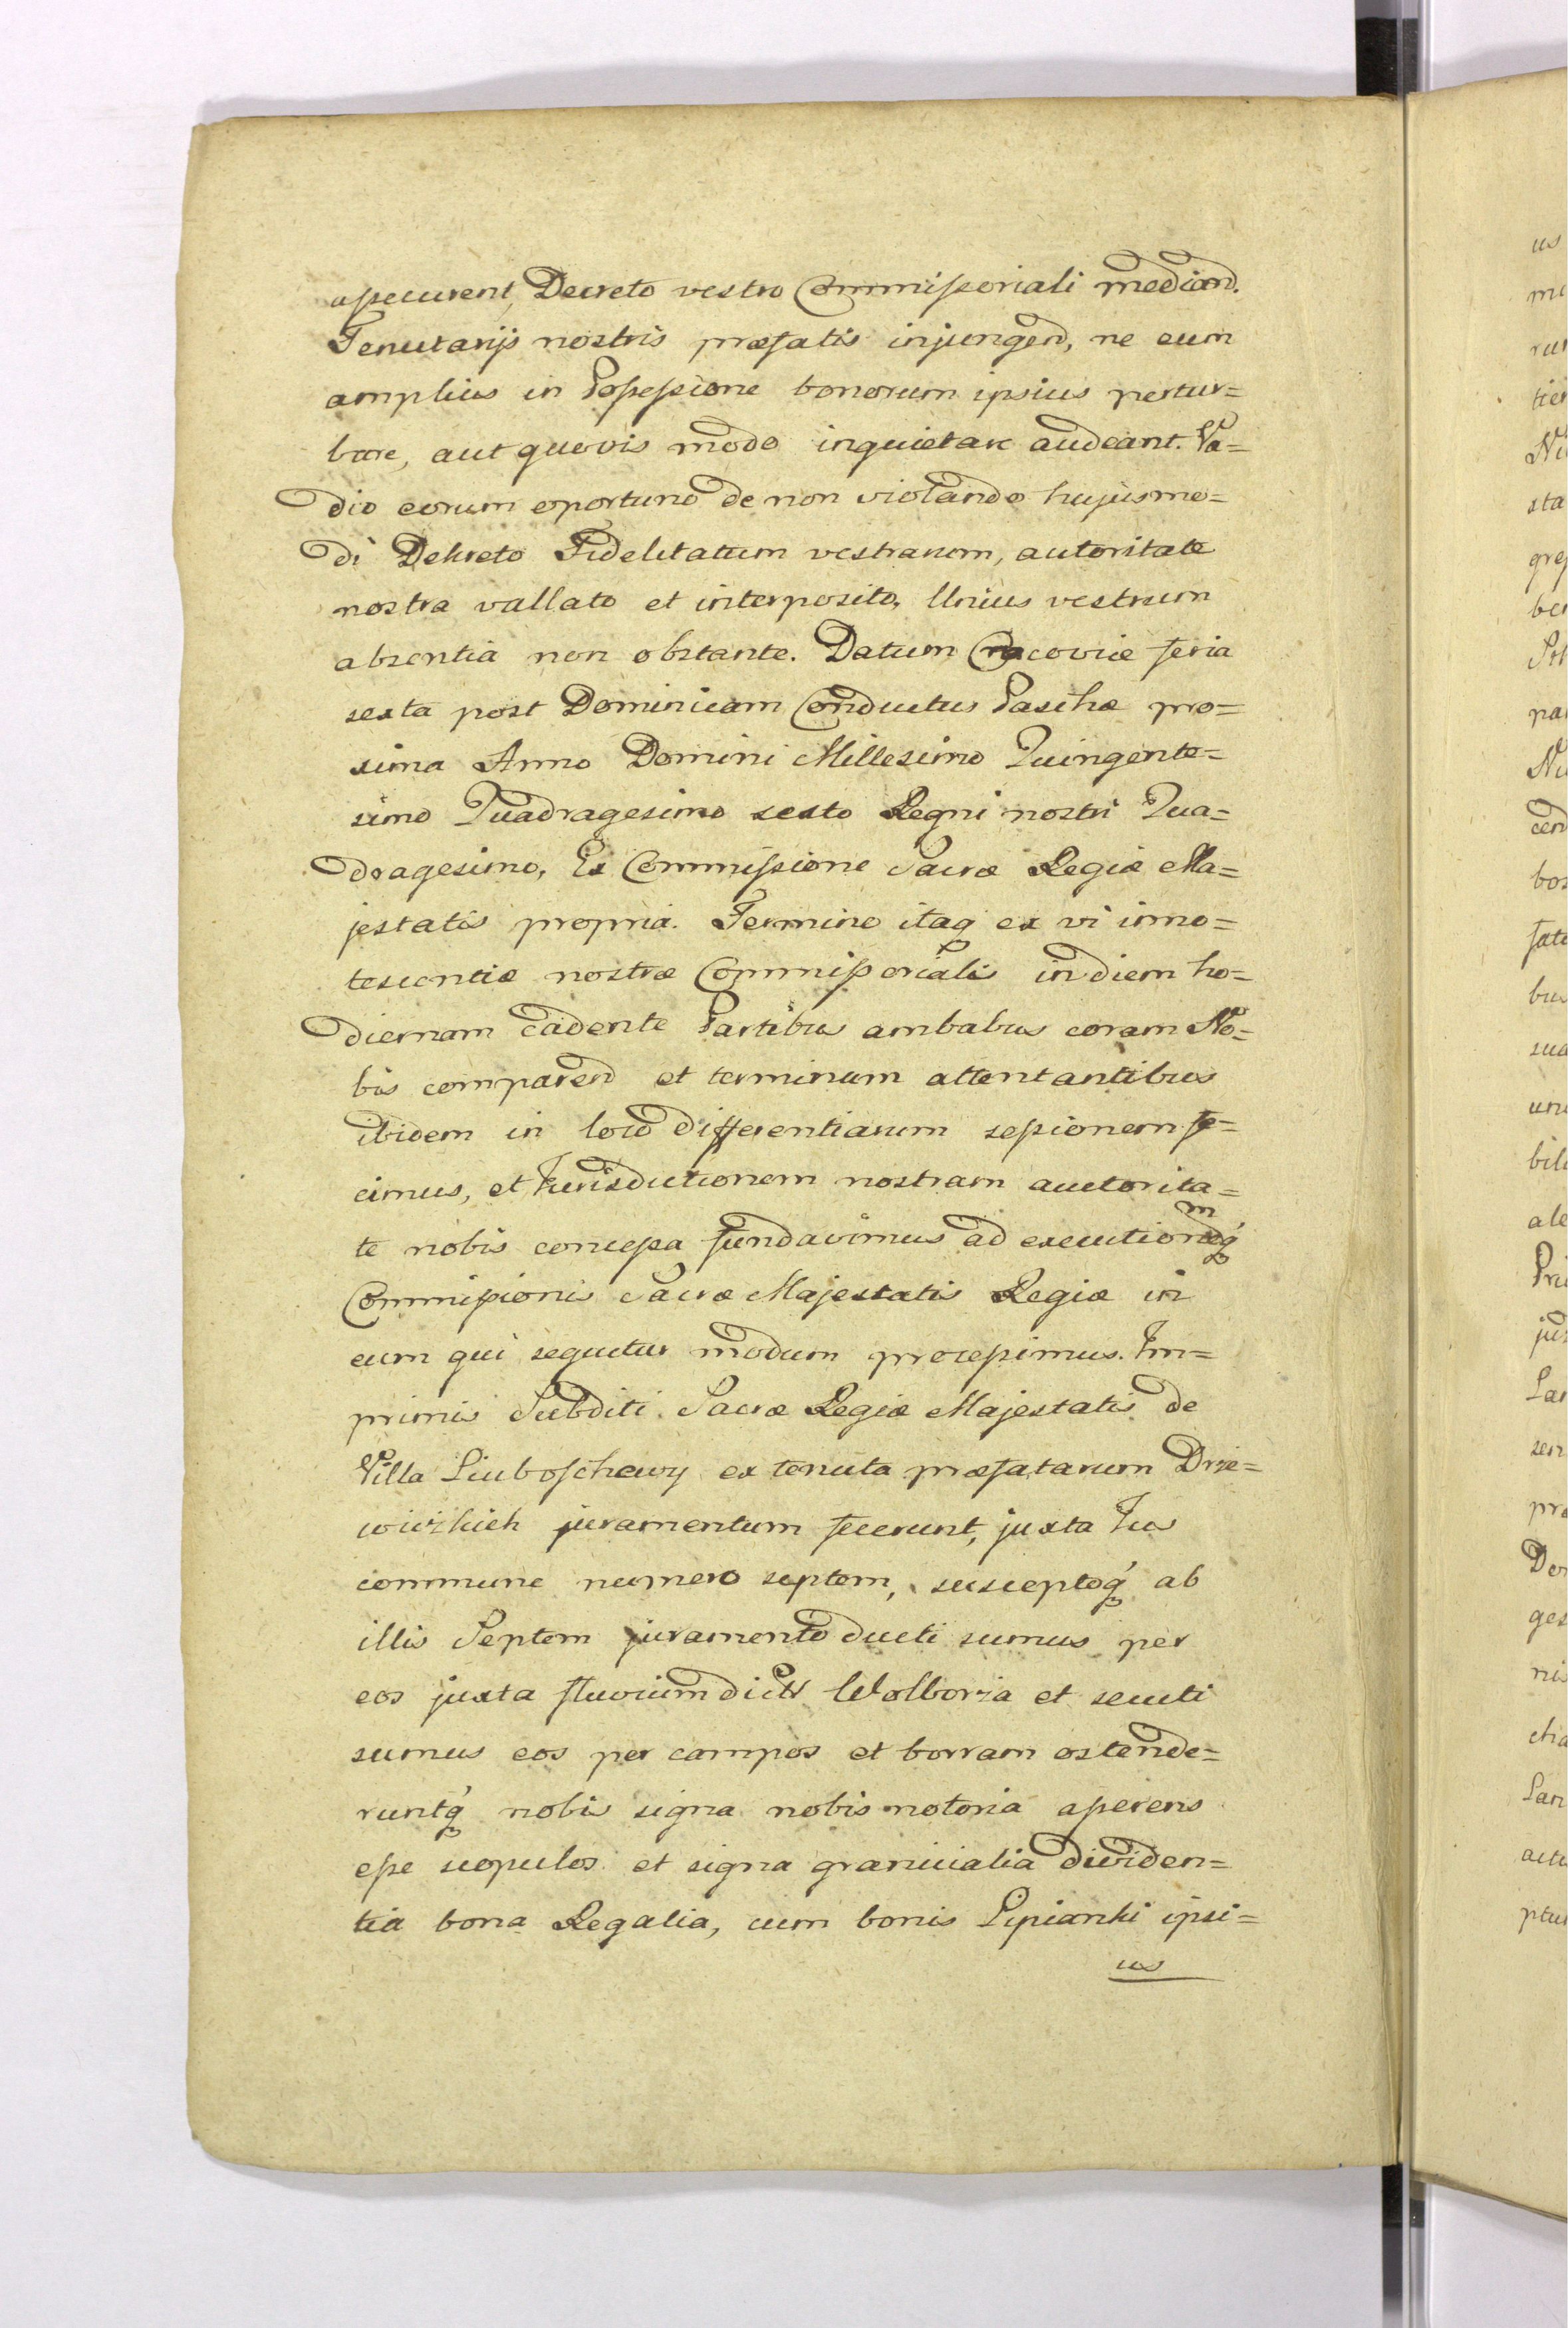 assecurent, Decreto vestro Commissoriali mediand.
Tenutarijs nostris præfatis injungend, ne eum
amplius in Possessione bonorum ipsius pertur=
bare, aut quovis modo inquietare audeant. Va=
dio eorum oportuno de non violando hujusmo=
di Dekreto Fidelitatum vestrarum, autoritate
nostra vallato et interposito, Unius vestrum
absentia non obstante. Datum Cracoviæ feria
sexta post Dominicam Conductus Paschæ pro=
xima Anno Domini Millesimo Quingente=
simo Quadragesimo sexto Regni nostri Qua=
dragesimo, Ex Commissione Sacræ Regiæ Ma=
jestatis propria. Termino itaq ex vi inno=
tescentiæ nostræ Commissorialis in diem ho=
diernam cadente Partibus ambabus coram No=
bis comparend et terminum attentantibus
ibidem in loco differentiarum sessionem fe=
cimus, et Jurisdictionem nostram auctorita=
te nobis concessa fundavimus ad executionemq́
Commissionis Sacræ Majestatis Regiæ in
eum qui sequitur modum processimus. Im=
primis Subditi Sacræ Regiæ Majestatis de
Villa Liuboschewy ex tenuta præfatarum Drze=
wiczkich juramentum fecerunt, juxta Jus
commune numero septem, susceptoq́ ab
illis Septem juramento ducti sumus per
eos juxta fluvium dict Wolborza et secuti
sumus eos per campos et borram ostende=
runtq́ nobis signa nobis notoria asserens
esse scopulos et signa granicialia dividen=
tia bona Regalia, cum bonis Lipianki ipsi=
us